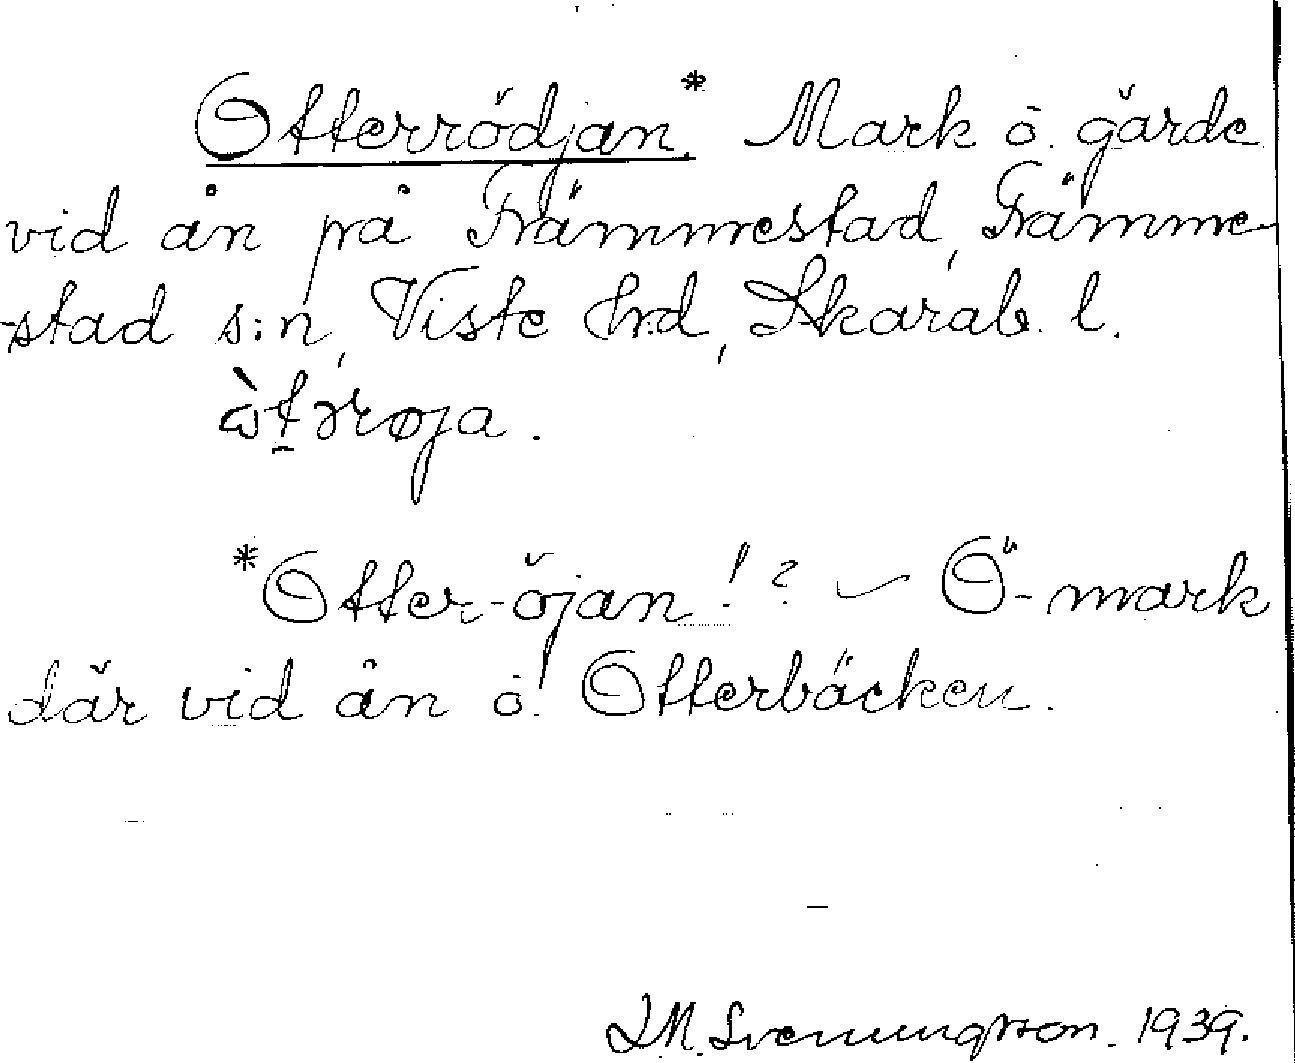 Otterrödjan.* Mark o. gärde
vid ån på Främmestad, Främme-
-stad s:n, Viste hrd, Skarab. l.
ὼt̯ərøja.
*Otter-öjan!? ~ Ö-mark
där vid ån o. Otterbäcken.
J.M. Svenungsson. 1939.